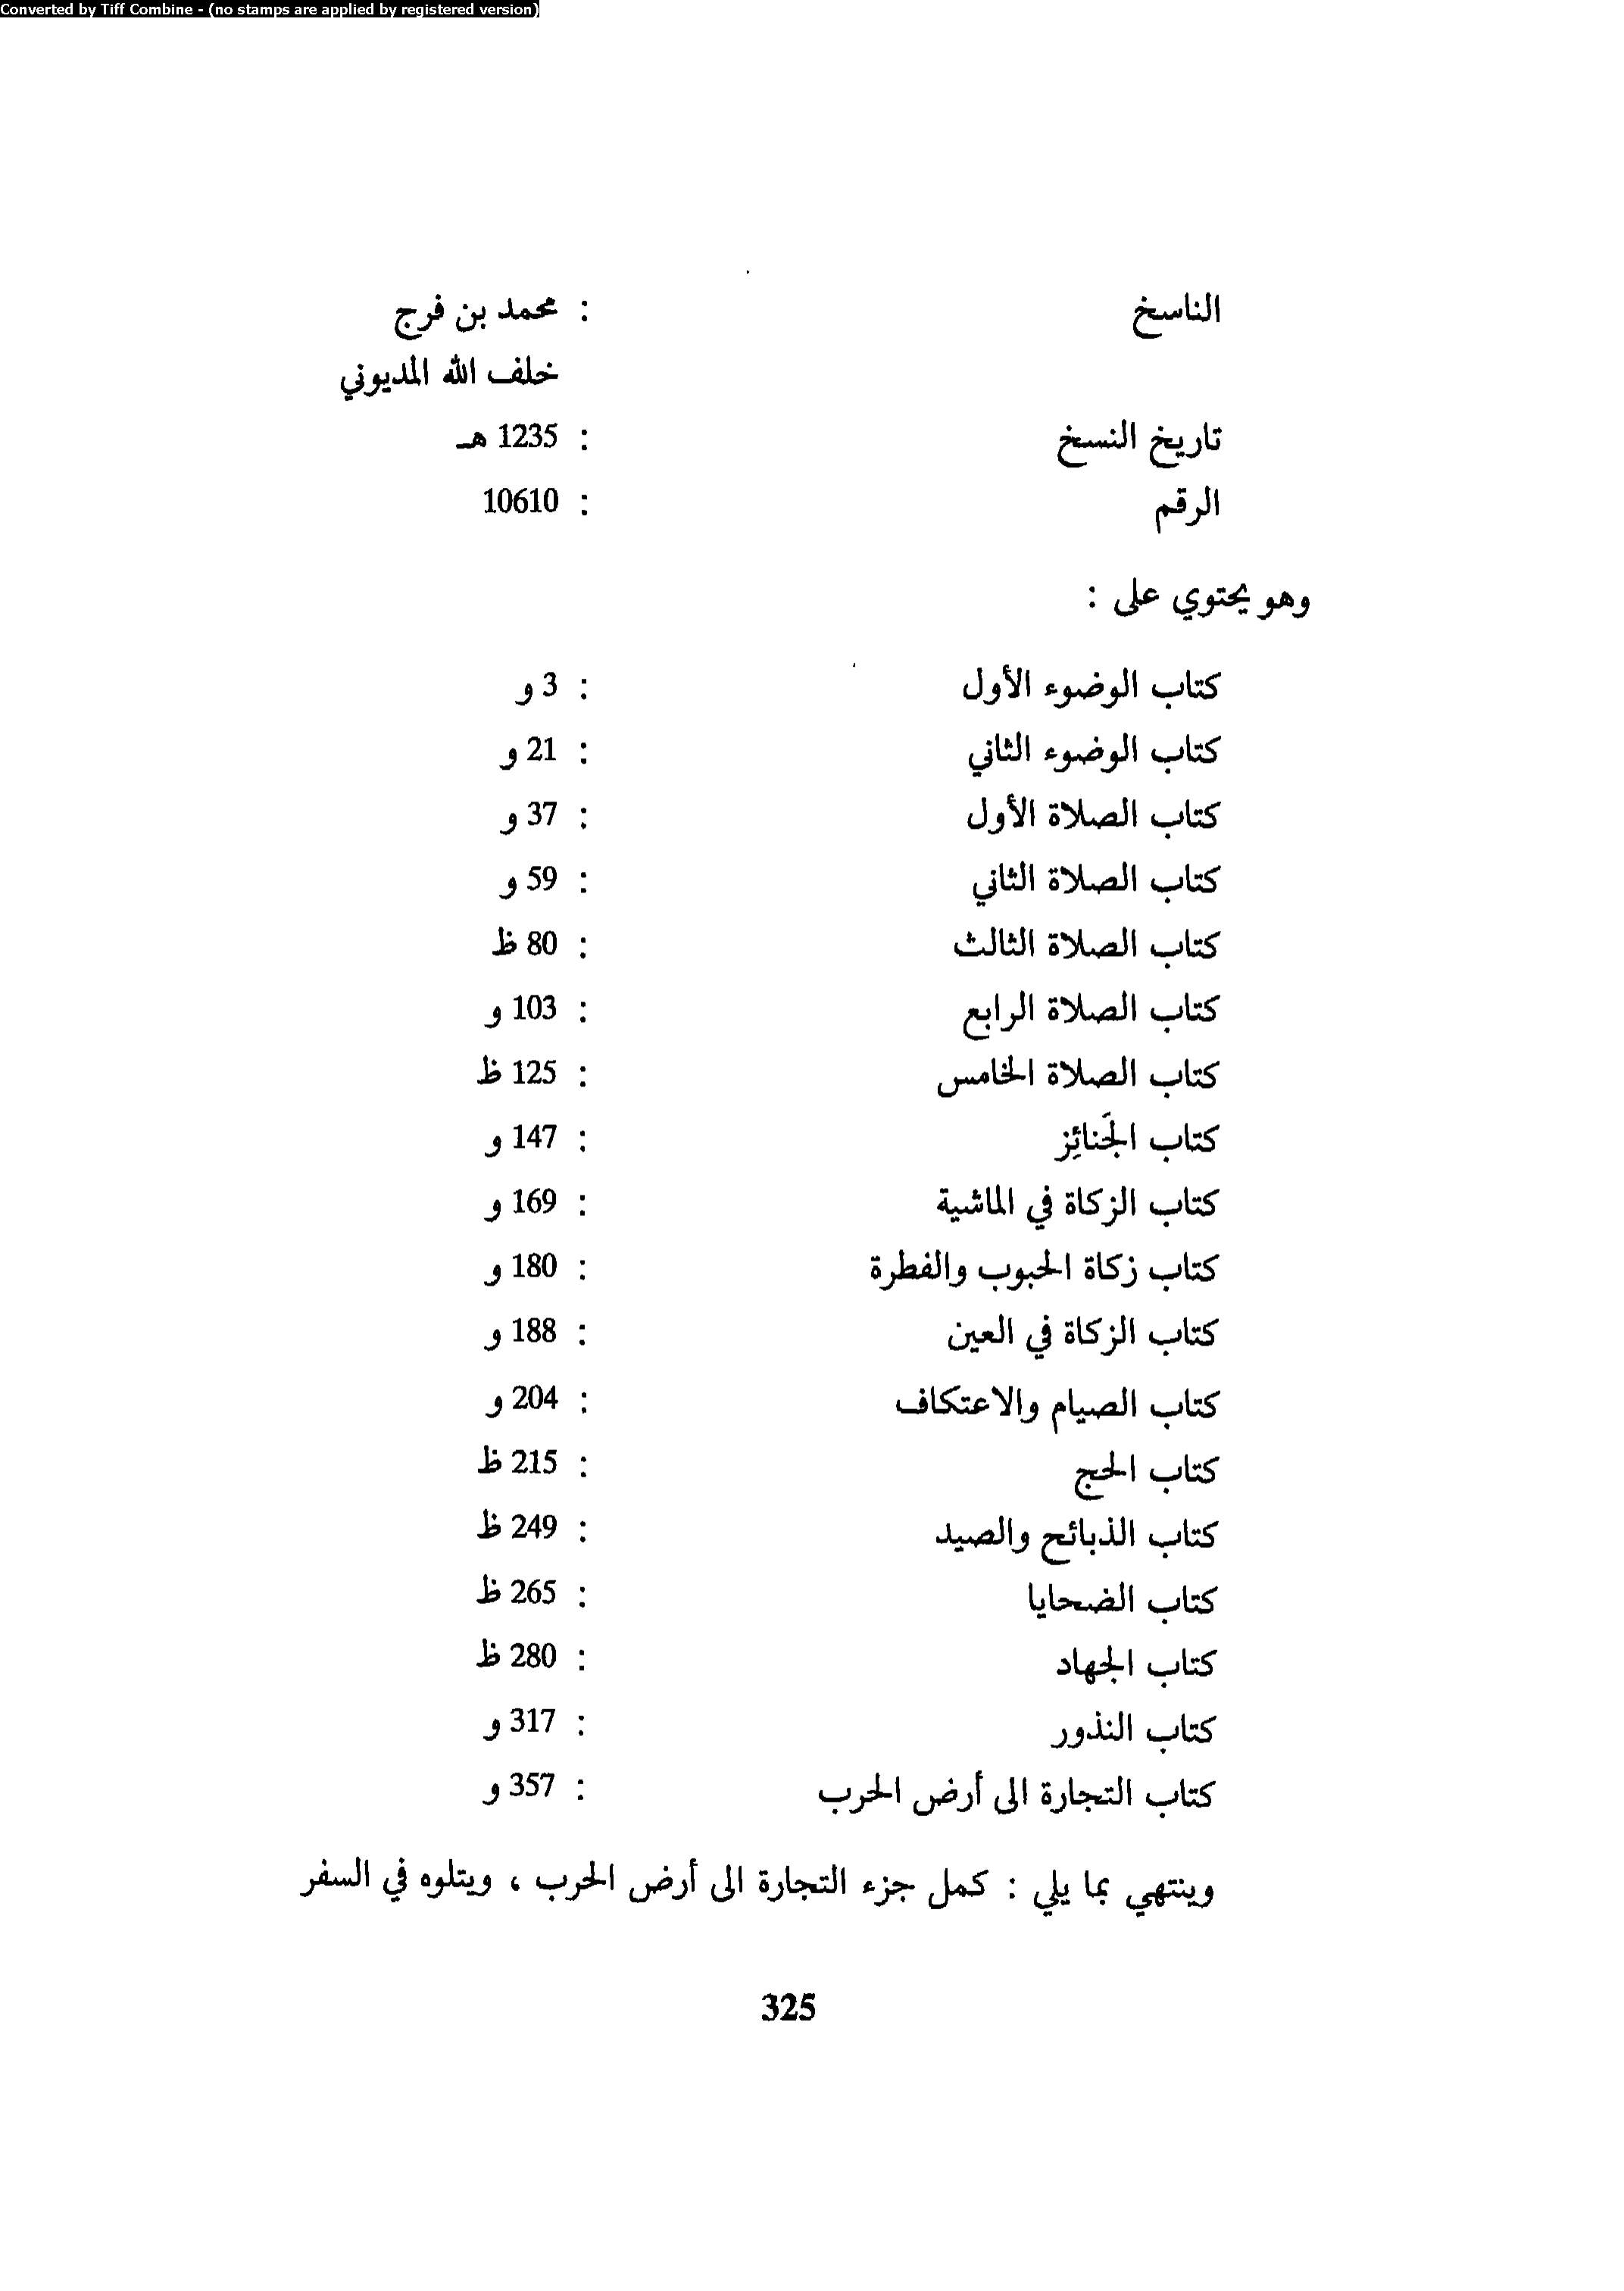 Converted by Tiff Combine - (no stamps are applied by registered version)
الناسخ : محمد بن فرج
خلف الله المديوني
تاريخ النسخ : 1235 هـ
الرقم : 10610
وهو يحتوي على :
كتاب الوضوء الأول : 3 و
كتاب الوضوء الثاني : 21 و
كتاب الصلاة الأول : 37 و
كتاب الصلاة الثاني : 59 و
كتاب الصلاة الثالث : 80 ظ
كتاب الصلاة الرابع : 103 و
كتاب الصلاة الخامس : 125 ظ
كتاب الجَنائِز : 147 و
كتاب الزكاة في الماشية : 169 و
كتاب زكاة الحبوب والفطرة : 180 و
كتاب الزكاة في العين : 188 و
كتاب الصيام والاعتكاف : 204 و
كتاب الحج : 215 ظ
كتاب الذبائح والصيد : 249 ظ
كتاب الضحايا : 265 ظ
كتاب الجهاد : 280 ظ
كتاب النذور : 317 و
كتاب التجارة الى أرض الحرب : 357 و
وينتهي بما يلي : كمل جزء التجارة الى أرض الحرب ، ويتلوه في السفر
325